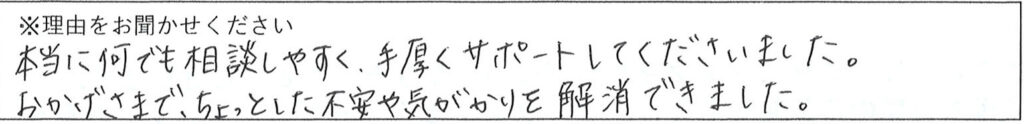 ※理由をお聞かせください
本当に何でも相談しやすく、手厚くサポートしてくださいました。
おかげさまで、ちょっとした不安や気がかりを解消できました。